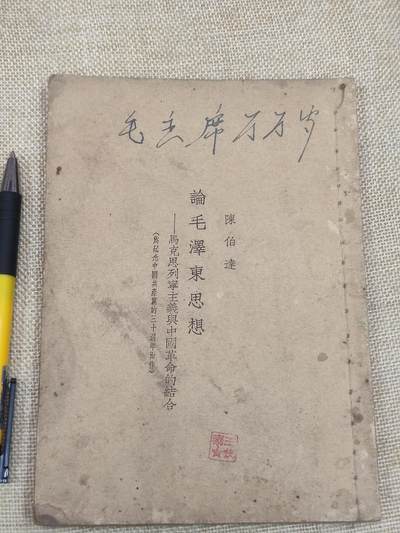 毛主席万万岁
陳伯達
論毛澤東思想
——馬克思列寧主義與中國革命的結合
（爲紀念中國共產黨的三十週年而作）